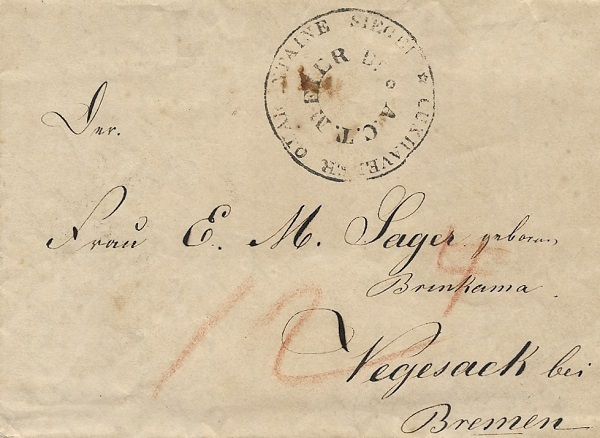 CUXHAVENER QUARANTAINE SIEGEL
A.C.T.
Der.
Frau E. M. Sager geboren
Brinkama
12 4
Vegesack bei
Bremen